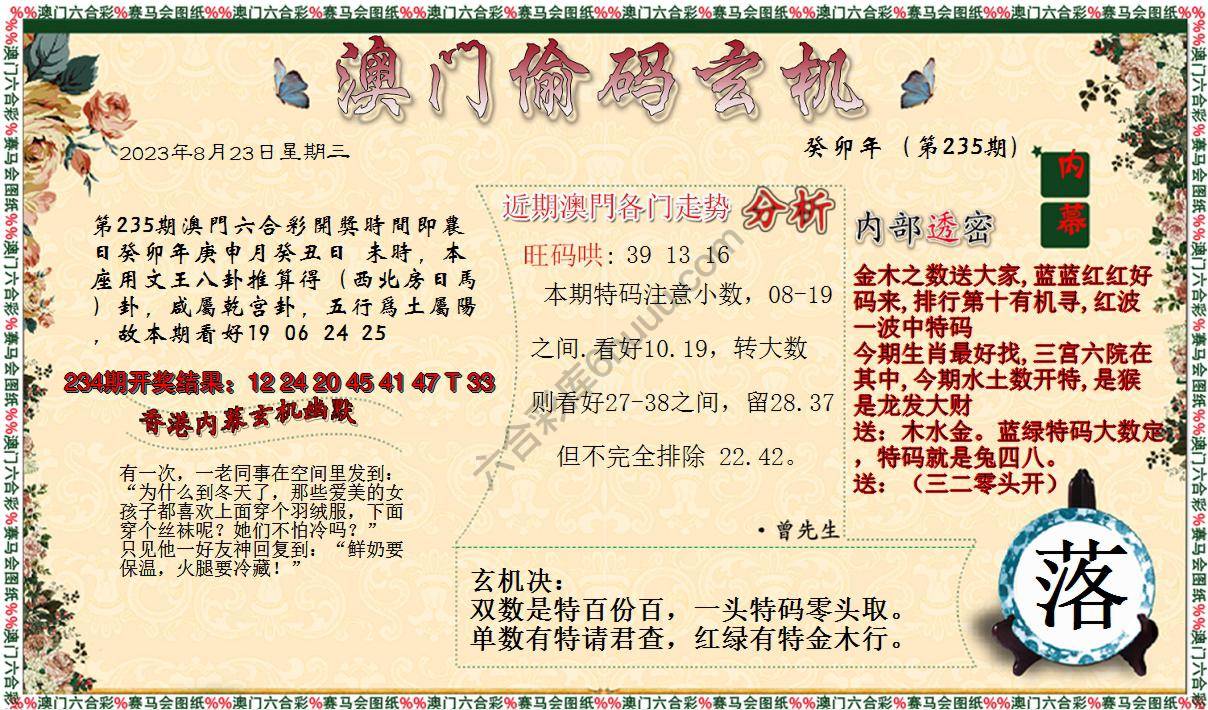 %%澳门六合彩%赛马会图纸%%澳门六合彩%赛马会图纸%%澳门六合彩%赛马会图纸%%澳门六合彩%赛马会图纸%%澳门六合彩%赛马会图纸%%澳门六合彩%赛马会图纸%%
澳门偷码玄机
2023年8月23日星期三
癸卯年（第235期）
内幕
第235期澳門六合彩開獎時間即農
日癸卯年庚申月癸丑日 未時，本
座用文王八卦推算得（西北房日馬
）卦，咸屬乾宫卦，五行爲土屬陽
，故本期看好19 06 24 25
234期开奖结果：12 24 20 45 41 47 T 33
香港内幕玄机幽默
有一次，一老同事在空间里发到：
“为什么到冬天了，那些爱美的女
孩子都喜欢上面穿个羽绒服，下面
穿个丝袜呢？她们不怕冷吗？”
只见他一好友神回复到：“鲜奶要
保温，火腿要冷藏！”
近期澳門各门走势 分析
旺码哄: 39 13 16
本期特码注意小数，08-19
之间.看好10.19，转大数
则看好27-38之间，留28.37
但不完全排除 22.42。
·曾先生
内部透密
金木之数送大家,蓝蓝红红好
码来,排行第十有机寻,红波
一波中特码
今期生肖最好找,三宫六院在
其中,今期水土数开特,是猴
是龙发大财
送：木水金。蓝绿特码大数定
，特码就是兔四八。
送：（三二零头开）
玄机决：
双数是特百份百，一头特码零头取。
单数有特请君查，红绿有特金木行。
落